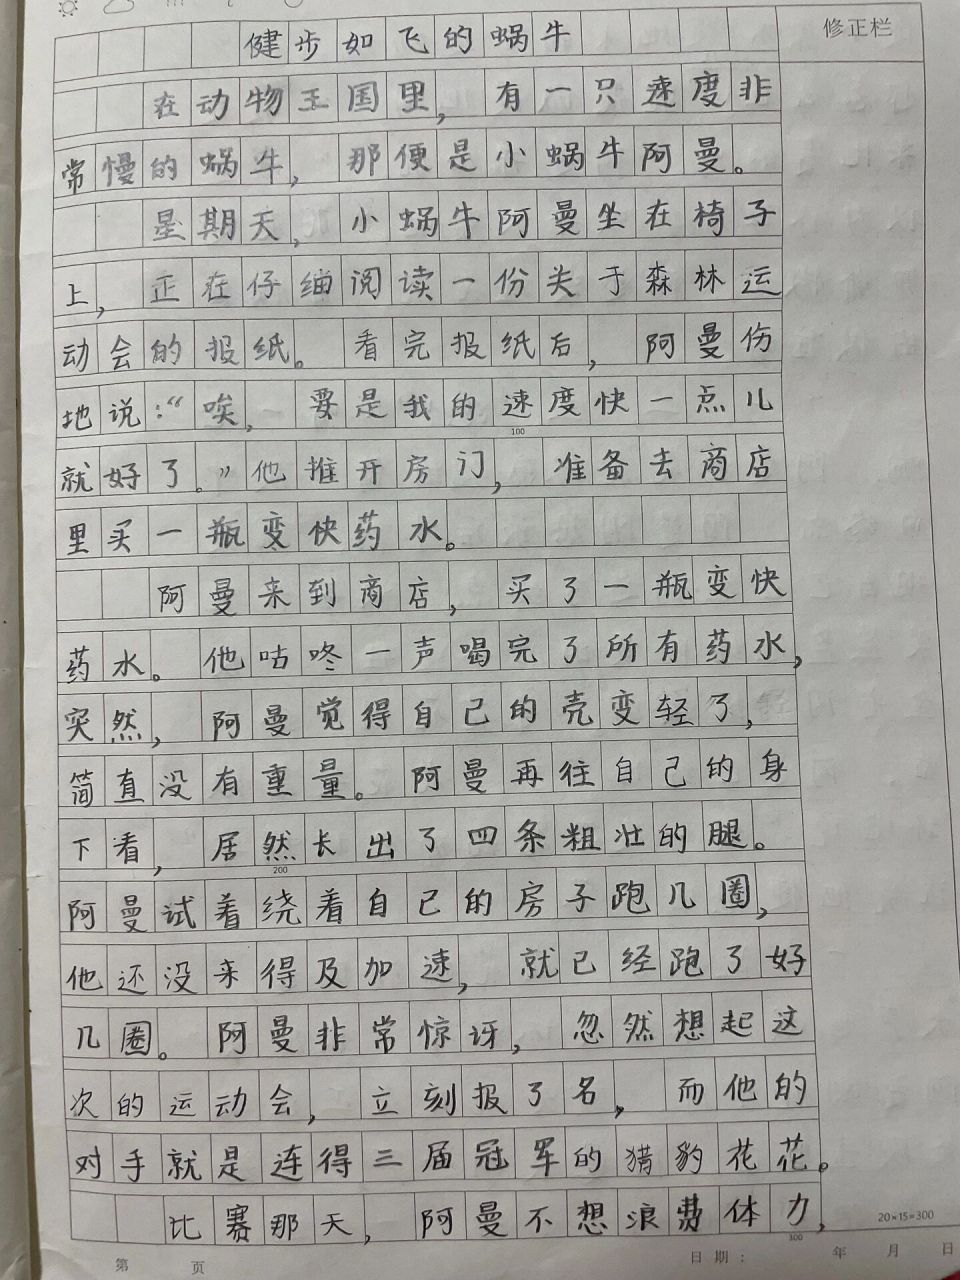 修正栏
健步如飞的蜗牛
在动物王国里，有一只速度非
常慢的蜗牛，那便是小蜗牛阿曼。
星期天，小蜗牛阿曼坐在椅子
上，正在仔细阅读一份关于森林运
动会的报纸。看完报纸后，阿曼伤
地说：“唉，要是我的速度快一点儿
100
就好了。”他推开房门，准备去商店
里买一瓶变快药水。
阿曼来到商店，买了一瓶变快
药水。他咕咚一声喝完了所有药水，
突然，阿曼觉得自己的壳变轻了，
简直没有重量。阿曼再往自己的身
下看，居然长出了四条粗壮的腿。
200
阿曼试着绕着自己的房子跑几圈，
他还没来得及加速，就已经跑了好
几圈。阿曼非常惊讶，忽然想起这
次的运动会，立刻报了名，而他的
对手就是连得三届冠军的猎豹花花。
比赛那天，阿曼不想浪费体力，
300
20×15=300
第 页 日期： 年 月 日